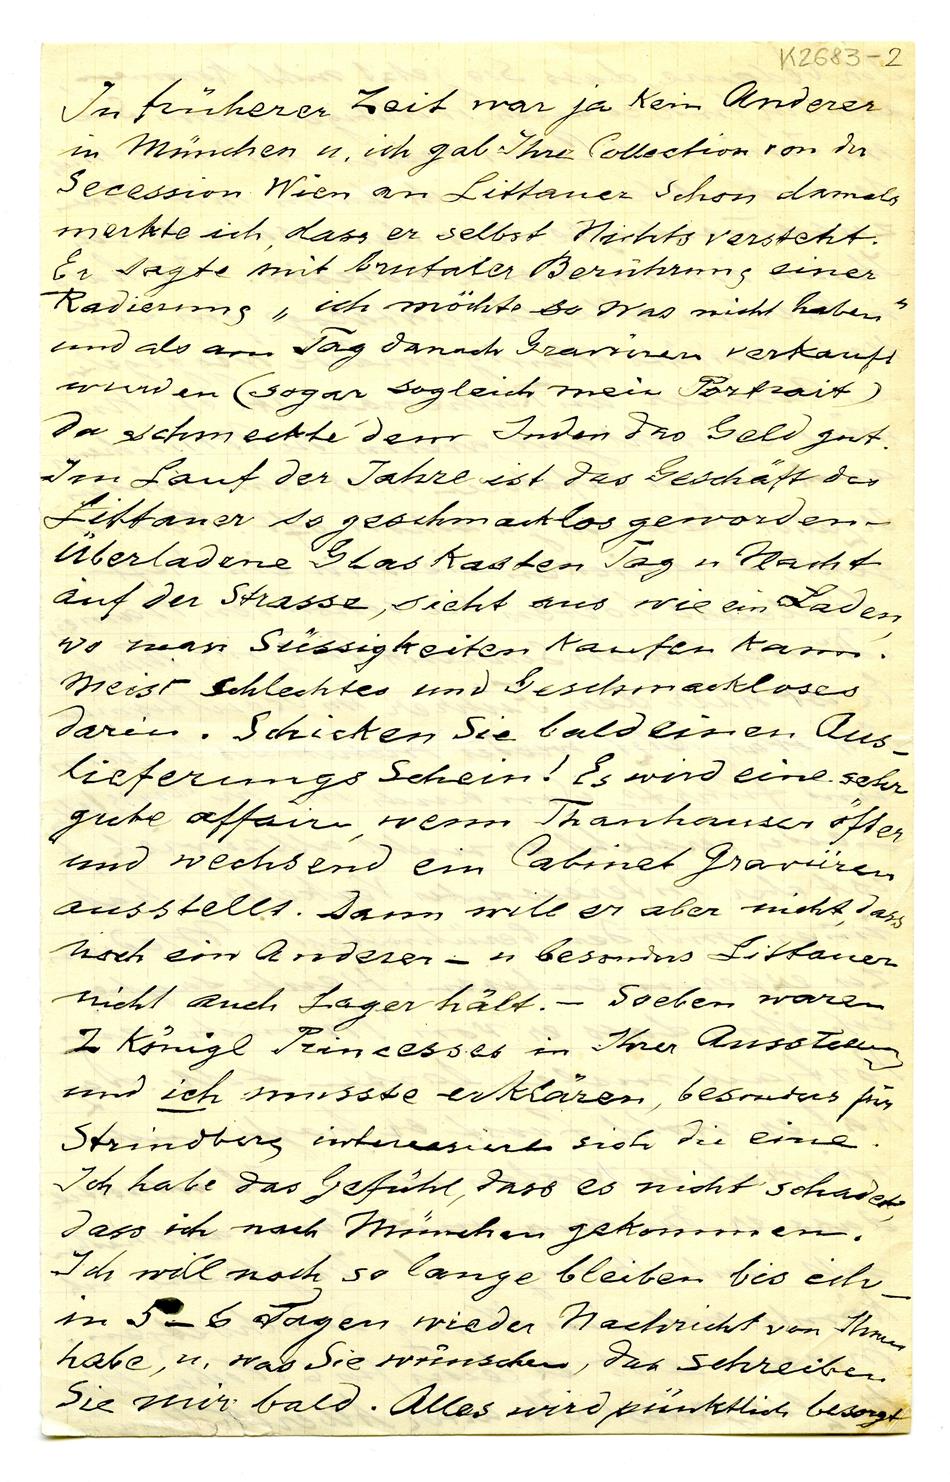 K2683-2
In früherer Zeit war ja kein Anderer
in München u. ich gab Ihre Collection von der
Secession Wien an Littauer schon damals
merkte ich, dass er selbst Nichts versteht.
Er sagte mit brutaler Berührung einer
Radierung „ich möchte so was nicht haben“
und als am Tag danach Gravüren verkauft
wurden (sogar sogleich mein Portrait)
da schmeckte dem Juden das Geld gut.
Im Lauf der Jahre ist das Geschäft des
Littauer so geschmacklos geworden –
Überladene Glaskasten Tag u Nacht
auf der Strasse, sieht aus wie ein Laden,
wo man Süssigkeiten kaufen kann.
Meist schlechtes und Geschmackloses
darin. Schicken Sie bald einen Aus-
lieferungsSchein! Es wird eine sehr
gute affaire, wenn Thanhauser öfter
und wechsend ein Cabinet Gravüren
ausstellt. Dann will er aber nicht, dass
noch ein Anderer – u besonders Littauer
nicht auch Lager hält. – Soeben waren
2 Königl Princesses in Ihrer Ausstellung
und ich musste erklären, besonders für
Strindberg interessiert sich die eine.
Ich habe das Gefühl, dass es nicht schadet,
dass ich nach München gekommen.
Ich will noch so lange bleiben bis ich –
in 5–6 Tagen wieder Nachricht von Ihnen
habe, u. was Sie wünschen, das schreiben
Sie mir bald. Alles wird pünktlich besorgt